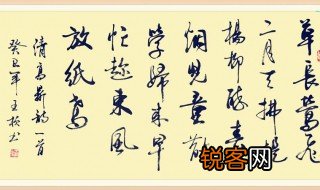 草長鶯飛
二月天拂堤
楊柳醉春
烟兒童散
學歸来早
忙趁東風
放紙鳶
清高鼎詩一首
锐客网